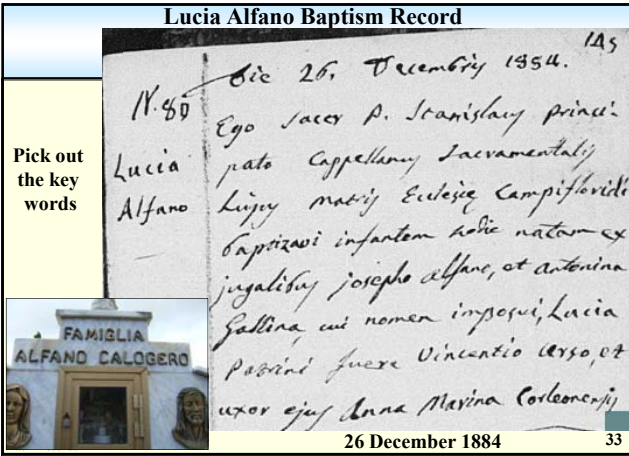 Lucia Alfano Baptism Record
145
Die 26. Decembris 1884.
N. 80
Ego Sacer D. Stanislaus Princi-
Pick out
the key
words
Lucia
Alfano
pato Cappellanus Sacramentalis
hujus matris Eclesię Campifloridi
baptizavi infantem hodie natam ex
jugalibus josepho Alfano, et Antonina
Gallina, cui nomen imposui, Lucia
Patrini fuere Vincentio Urso, et
uxor ejus Anna Marina Corleonensis
FAMIGLIA
ALFANO CALOGERO
26 December 1884
33